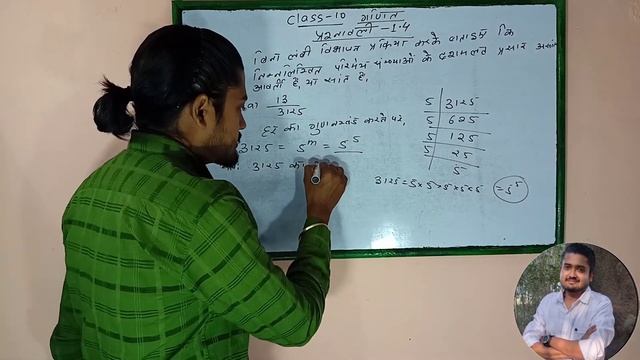 Class-10 गणित
प्रश्नावली-1.4
बिना लंबी विभाजन प्रक्रिया करके बताइये कि
निम्नलिखित परिमेय संख्याओं के दशमलव प्रसार असांत
आवर्ती है, या सांत है,
13
3125
हर का गुणनखंड करने पर,
3125 = 5^m = 5^5
3125 का
5 3125
5 625
5 125
5 25
5
3125=5×5×5×5×5 =5^5